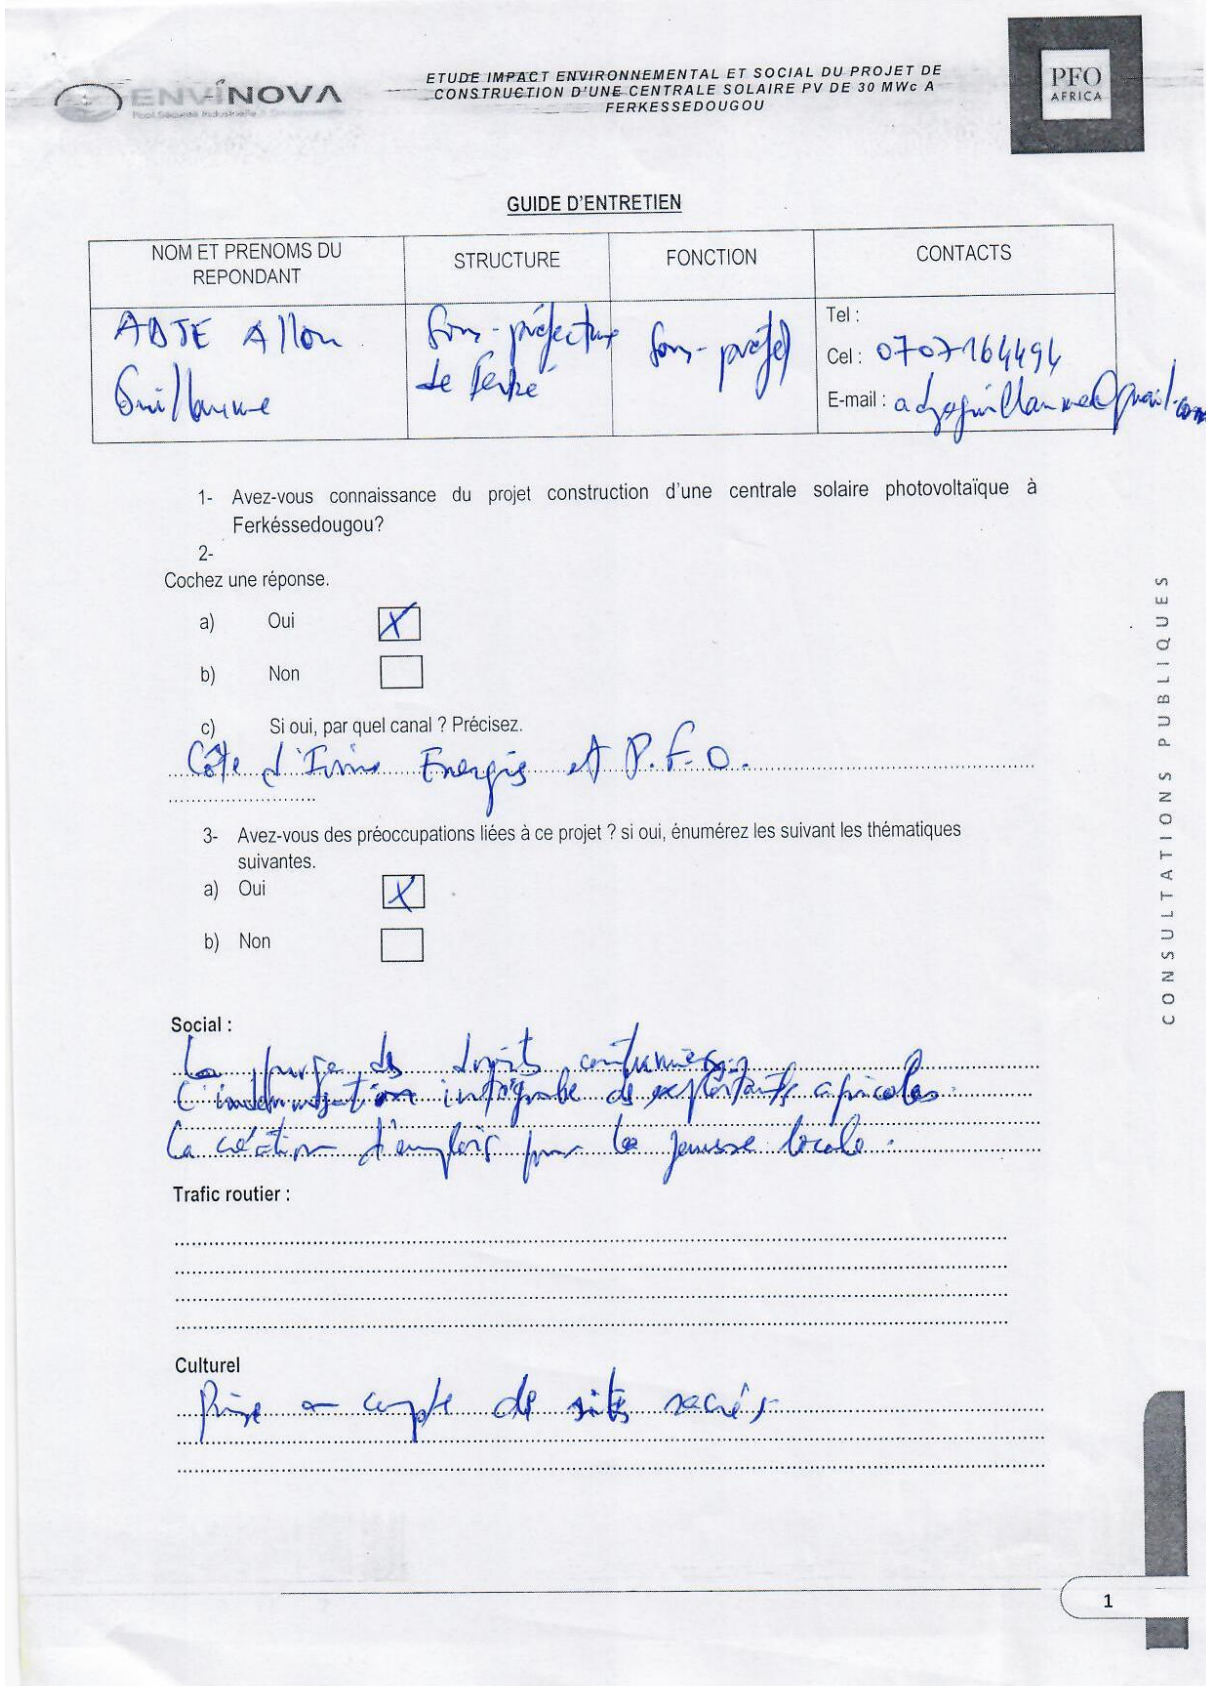 ENVINOVA
ETUDE IMPACT ENVIRONNEMENTAL ET SOCIAL DU PROJET DE
CONSTRUCTION D'UNE CENTRALE SOLAIRE PV DE 30 MWc A
FERKESSEDOUGOU
PFO
AFRICA
GUIDE D'ENTRETIEN
NOM ET PRENOMS DU
REPONDANT
STRUCTURE
FONCTION
CONTACTS
ADJE Allou
Guillaume
Sous-préfecture
de Ferké
Sous-préfet
Tel :
Cel : 0707164494
E-mail :
1- Avez-vous connaissance du projet construction d'une centrale solaire photovoltaïque à
Ferkéssedougou?
2-
Cochez une réponse.
a) Oui X
b) Non
c) Si oui, par quel canal ? Précisez.
Côte d'Ivoire Energies et P.F.O.
3- Avez-vous des préoccupations liées à ce projet ? si oui, énumérez les suivant les thématiques
suivantes.
a) Oui X
b) Non
Social :
La purge des droits coutumiers.
L'indemnisation intégrale des exploitants agricoles.
La création d'emplois pour la jeunesse locale.
Trafic routier :
Culturel
Prise en compte de sites sacrés
CONSULTATIONS PUBLIQUES
1